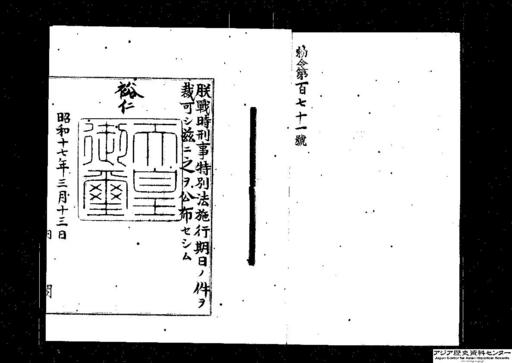 勅令第百七十一號
朕戰時刑事特別法施行期日ノ件ヲ
裁可シ玆ニ之ヲ公布セシム
裕仁
天皇
御璽
昭和十七年三月十三日
アジア歴史資料センター
Japan Center for Asian Historical Records